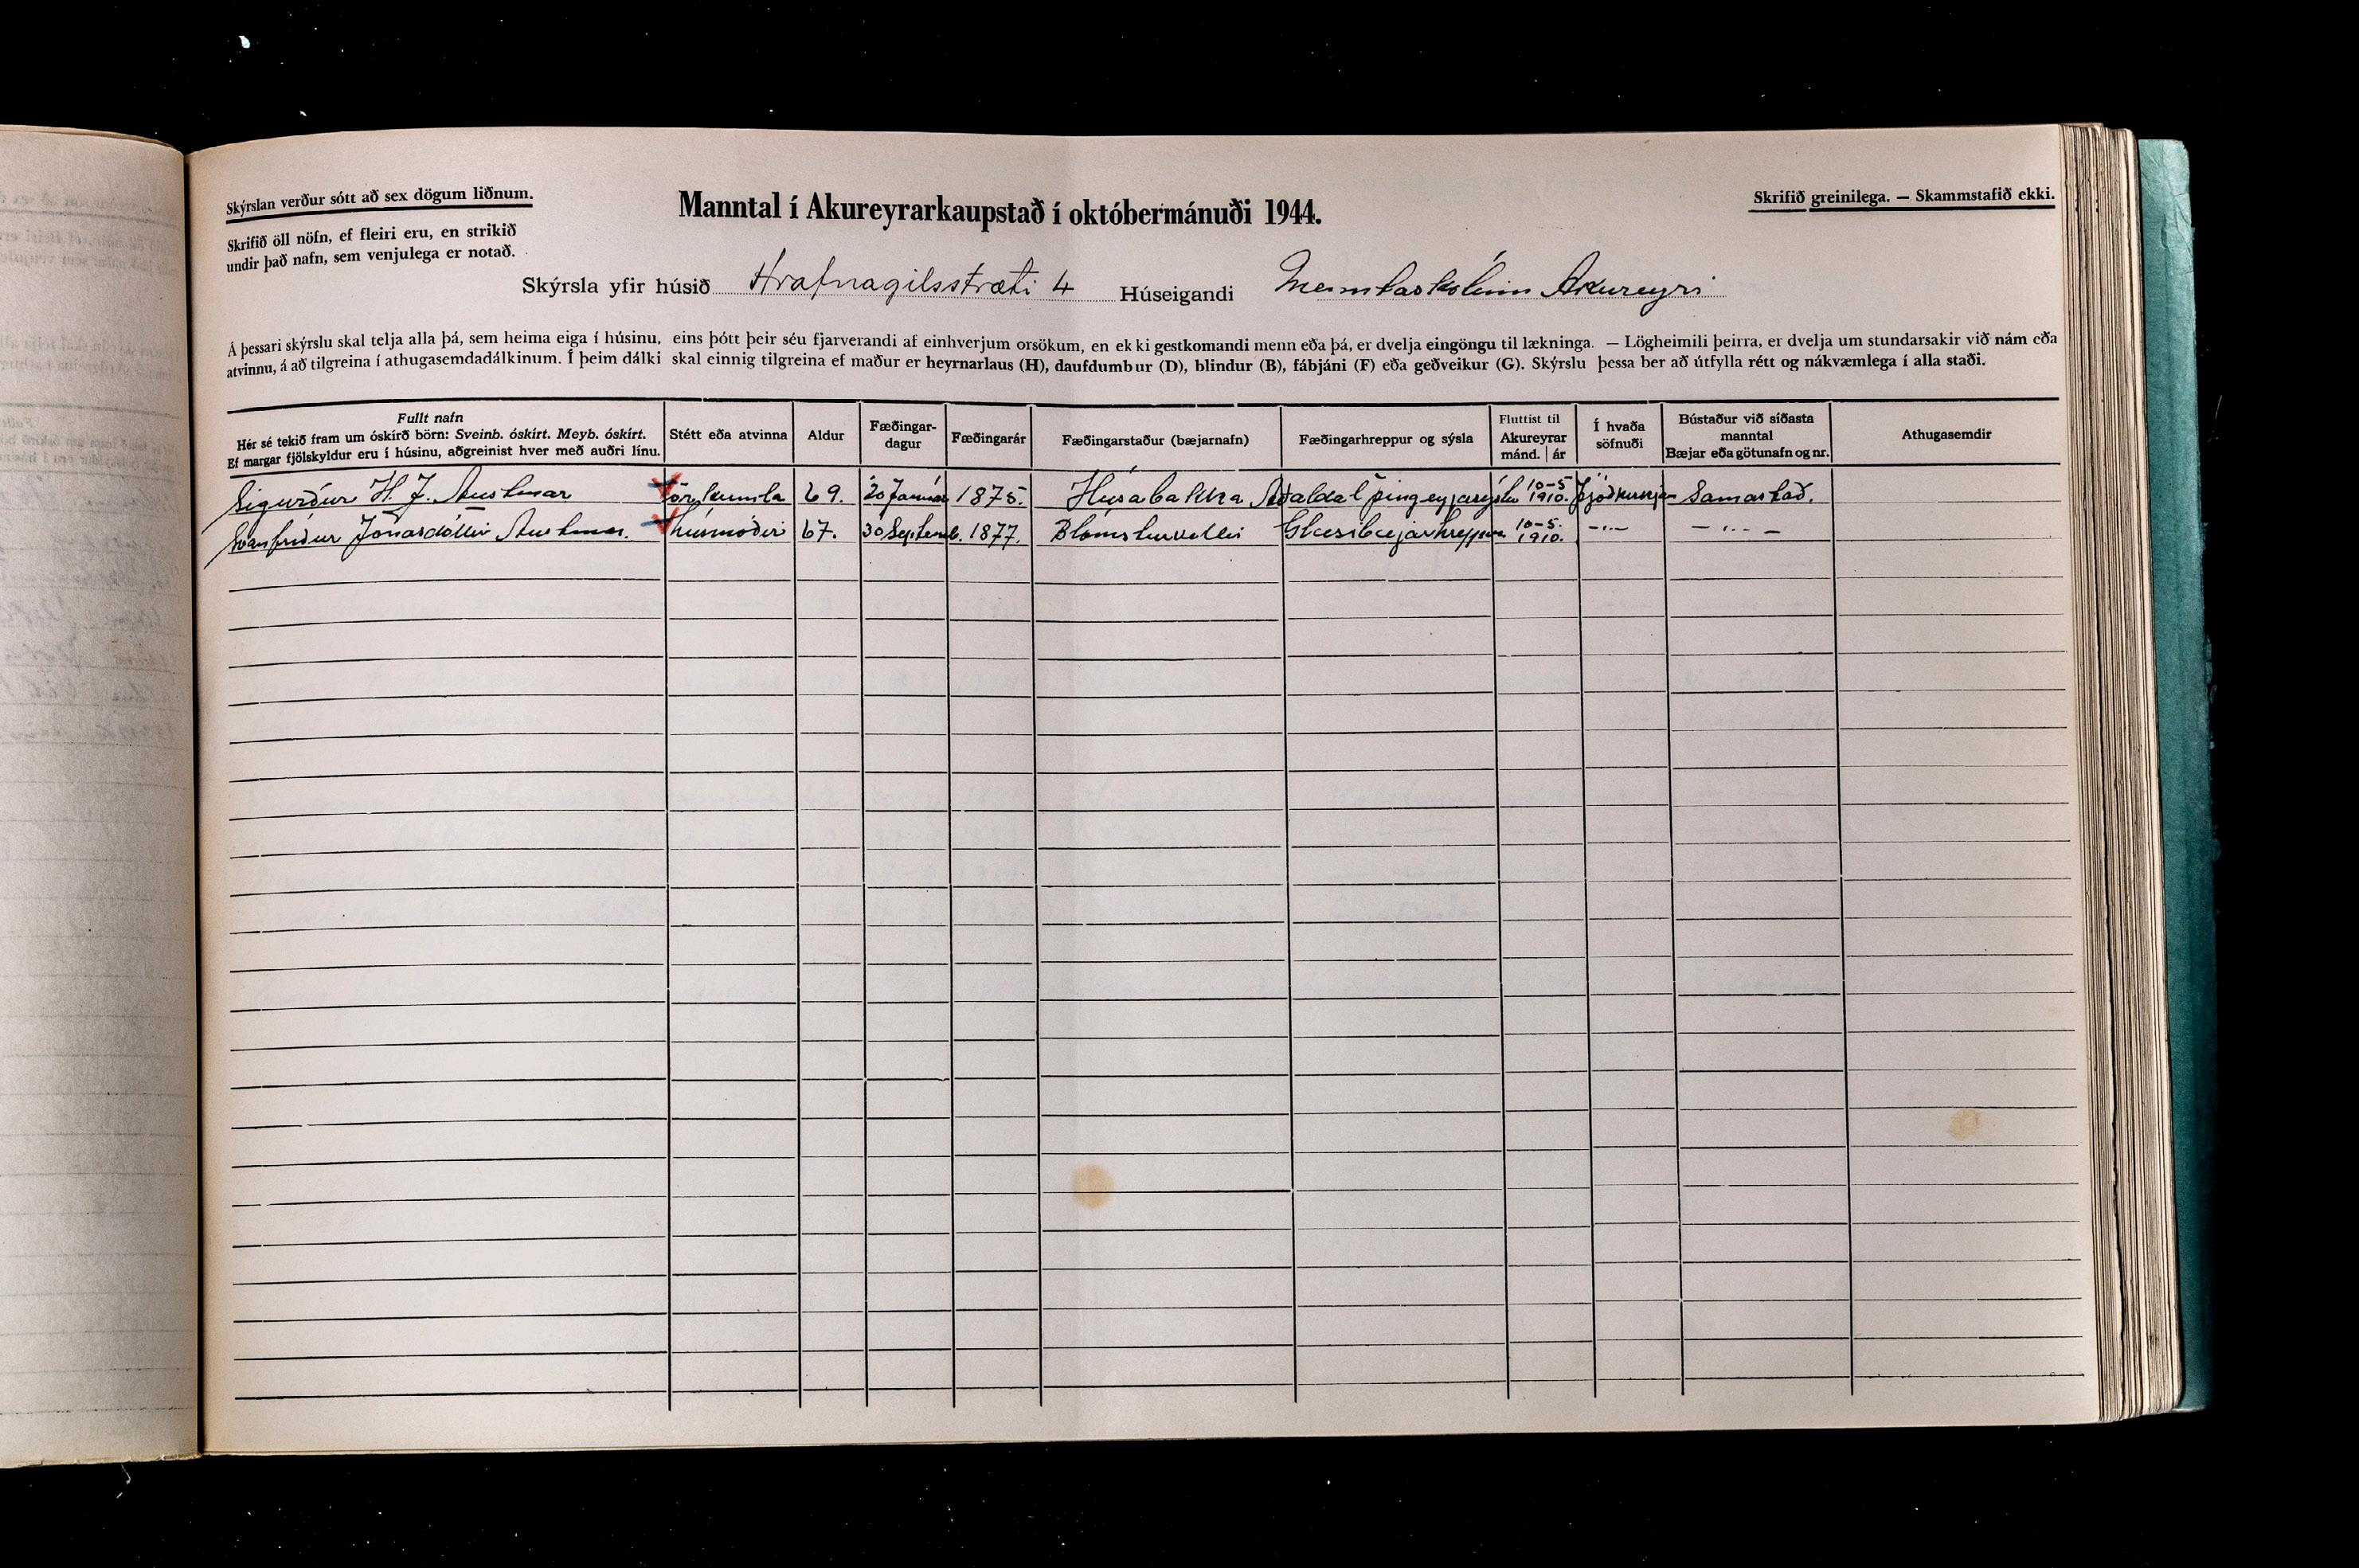 Skýrslan verður sótt að sex dögum liðnum.
Skrifið öll nöfn, ef fleiri eru, en strikið
undir það nafn, sem venjulega er notað.
Manntal í Akureyrarkaupstað í októbermánuði 1944.
Skrifið greinilega. — Skammstafið ekki.
Skýrsla yfir húsið Hrafnagilsstræti 4 Húseigandi Menntaskólinn Akureyri
Á þessari skýrslu skal telja alla þá, sem heima eiga í húsinu, eins þótt þeir séu fjarverandi af einhverjum orsökum, en ekki gestkomandi menn eða þá, er dvelja eingöngu til lækninga. — Lögheimili þeirra, er dvelja um stundarsakir við nám eða
atvinnu, á að tilgreina í athugasemdadálkinum. Í þeim dálki skal einnig tilgreina ef maður er heyrnarlaus (H), daufdumbur (D), blindur (B), fábjáni (F) eða geðveikur (G). Skýrslu þessa ber að útfylla rétt og nákvæmlega í alla staði.
Fullt nafn
Hér sé tekið fram um óskírð börn: Sveinb. óskírt. Meyb. óskírt.
Ef margar fjölskyldur eru í húsinu, aðgreinist hver með auðri línu.
Stétt eða atvinna
Aldur
Fæðingar-
dagur
Fæðingarár
Fæðingarstaður (bæjarnafn)
Fæðingarhreppur og sýsla
Fluttist til
Akureyrar
mánd. | ár
Í hvaða
söfnuði
Bústaður við síðasta
manntal
Bæjar eða götunafn og nr.
Athugasemdir
Sigurður H. J. Austmar 69. 20 Janúar 1875. Húsabakka Aðaldal þingeyjarsýslu 10-5 1910. Þjóðkirkjan Samastað.
Svanfríður Jónasdóttir Austmar. húsmóðir 67. 30 Septemb. 1877. Blómsturvellir Glæsibæjarhreppur 10-5. 1910. —〃— —〃—